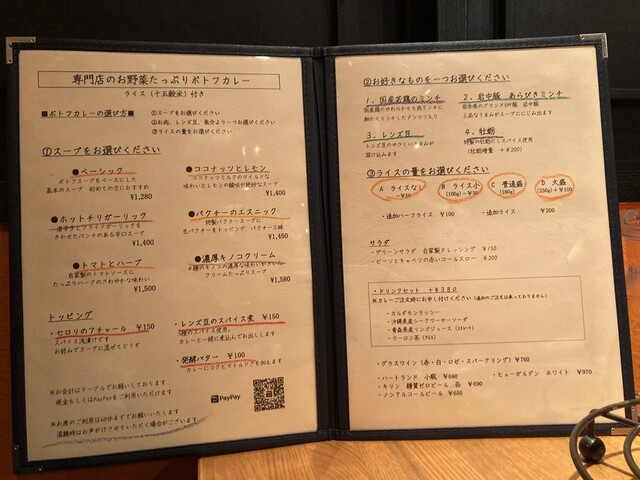 専門店のお野菜たっぷりポトフカレー
ライス（十五穀米）付き
■ポトフカレーの選び方■
①スープをお選びください
②お肉、レンズ豆、魚介より一つお選びください
③ライスの量をお選びください
①スープをお選びください
●ベーシック
ポトフスープをベースにした
基本のスープ 初めての方におすすめ
¥1,280
●ココナッツとレモン
ココナッツミルクのマイルドな
味わいとレモンの酸味が絶妙なスープ
¥1,400
●ホットチリガーリック
唐辛子とフライドガーリックを
きかせたパンチのある辛口スープ
¥1,400
●パクチーのエスニック
特製パクチースープに
生パクチーをトッピング パクチー三昧
¥1,450
●トマトとハーブ
自家製のトマトソースに
たっぷりハーブのさわやかな味わい
¥1,500
●濃厚キノコクリーム
クリームたっぷりスープ
¥1,580
トッピング
・セロリのアチャール ¥150
スパイス浅漬けです
お好みでスープに混ぜてどうぞ
・レンズ豆のスパイス煮 ¥150
カレーと一緒に煮込んでお出しします
・発酵バター ¥100
カレーにコクとマイルドさを加えます
※お会計はテーブルでお願いしております
現金もしくはPayPayをご利用いただけます
PayPay
※お席のご利用は60分まででお願いいたします
混雑時はお声がけさせていただく場合がございます
②お好きなものを一つお選びください
1. 国産若鶏のミンチ
国産鶏のやわらかもも肉ミンチに
細かくミンチしたナンコツ入り
2. 岩中豚 あらびきミンチ
岩手県のブランドSPF豚 岩中豚
上品なうまみがスープににじみ出ます
3. レンズ豆
レンズ豆のやさしいうまみが
溶け込みます
4. 牡蛎
（牡蛎増量 +¥200）
③ライスの量をお選びください
A ライスなし
-¥50
B ライス小
(100g) -¥30
C 普通盛
(160g)
D 大盛
(250g)+¥100
・追加ハーフライス ¥100
・追加ライス ¥200
サラダ
・グリーンサラダ 自家製ドレッシング ¥150
・ビーツとキャベツの赤いコールスロー ¥200
・ドリンクセット +¥380
※カレーご注文時にお申し付けください（追加のご注文は承っておりません）
・カルダモンラッシー
・沖縄県産シークワーサーソーダ
・青森県産リンゴジュース（ストレート）
・ウーロン茶（アイス）
・グラスワイン（赤・白・ロゼ・スパークリング）¥760
・ハートランド 小瓶 ¥690
・ヒューガルデン ホワイト ¥970
・キリン 糖質ゼロビール 缶 ¥690
・ノンアルコールビール ¥650